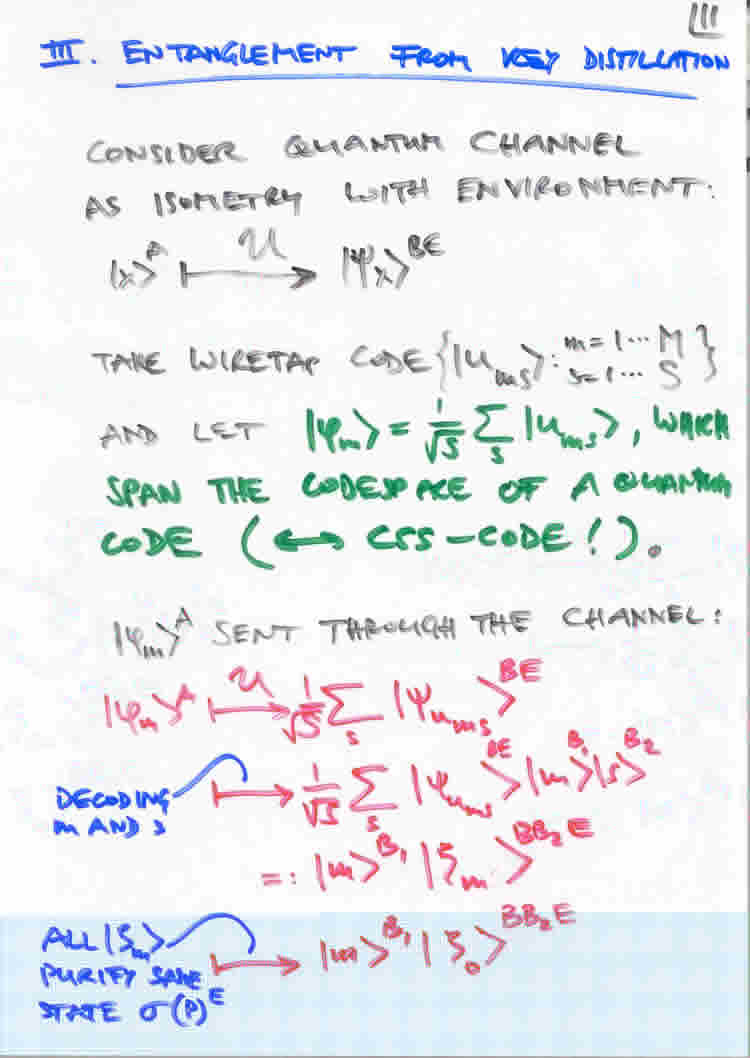 III
III. ENTANGLEMENT FROM KEY DISTILLATION
CONSIDER QUANTUM CHANNEL
AS ISOMETRY WITH ENVIRONMENT:
|x⟩^A ⟼^U |ψ_x⟩^BE
TAKE WIRETAP CODE {|u_ms⟩: m=1...M s=1...S}
AND LET |φ_m⟩ = 1/√S Σ_s |u_ms⟩, WHICH
SPAN THE CODESPACE OF A QUANTUM
CODE (↔ CSS-CODE!).
|φ_m⟩^A SENT THROUGH THE CHANNEL:
|φ_m⟩^A ⟼^U 1/√S Σ_s |ψ_u_ms⟩^BE
DECODING m AND s ⟼ 1/√S Σ_s |ψ_u_ms⟩^BE |m⟩^B₁ |s⟩^B₂
=: |m⟩^B₁ |ζ_m⟩^BB₂E
ALL |ζ_m⟩ ⟼ |m⟩^B₁ |ζ_0⟩^BB₂E
PURIFY SAME
STATE σ(P)^E